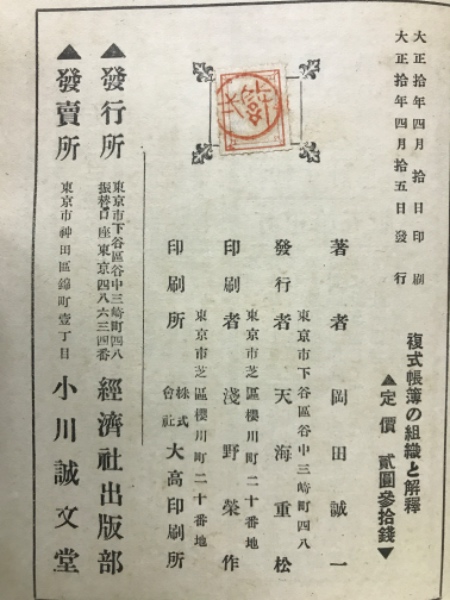 大正拾年四月 拾 日印 刷
大正拾年四月拾五日發 行
複式帳簿の組織と解釋
▲定 價 貳圓參拾錢▼
著 者 岡田誠一
東京市下谷區谷中三崎町四八
發行者 天海重松
東京市芝區櫻川町二十番地
印刷者 淺野榮作
東京市芝區櫻川町二十番地
印刷所 株式會社 大高印刷所
▲發行所 東京市下谷區谷中三崎町四八
振替口座東京四八六三四番 經濟社出版部
▲發賣所 東京市神田區錦町壹丁目 小川誠文堂